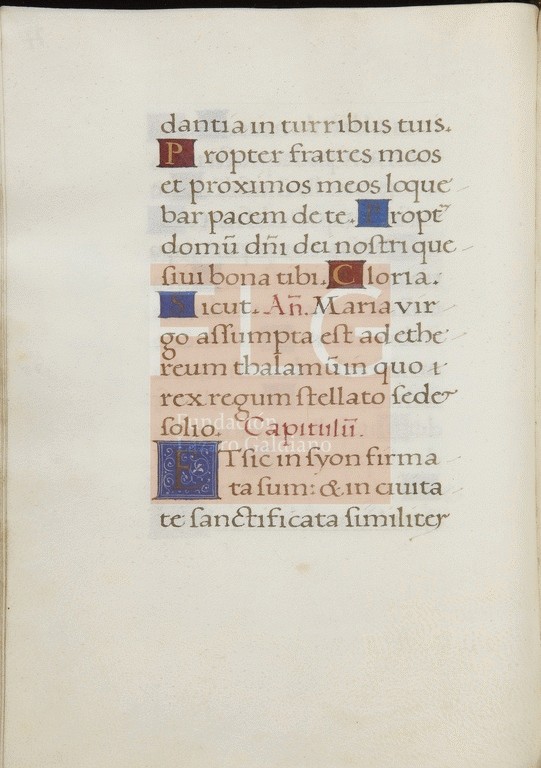 dantia in turribus tuis.
Propter fratres meos
et proximos meos loque
bar pacem de te. Propt᷑
domū dñi dei nostri que
siui bona tibi. Gloria.
Sicut. Añ. Maria vir
go assumpta est ad ethe
reum thalamū in quo
rex regum stellato sede
solio. Capitulū.
ET sic in syon firma
ta sum: & in ciuita
te sanctificata similiter
FLG
Fundación
Lázaro Galdiano